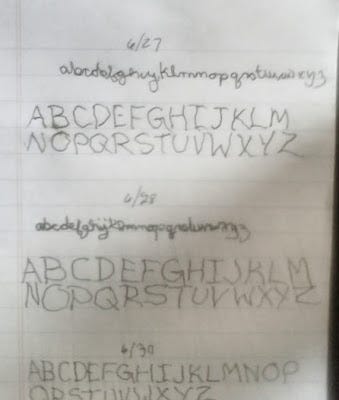 6/27
abcdefghijklmnopqrstuvwxyz
ABCDEFGHIJKLM
NOPQRSTUVWXYZ
6/28
abcdefghijklmnopqrstuvwxyz
ABCDEFGHIJKLM
NOPQRSTUVWXYZ
6/30
ABCDEFGHIJKLMNOP
QRSTUVWXYZ